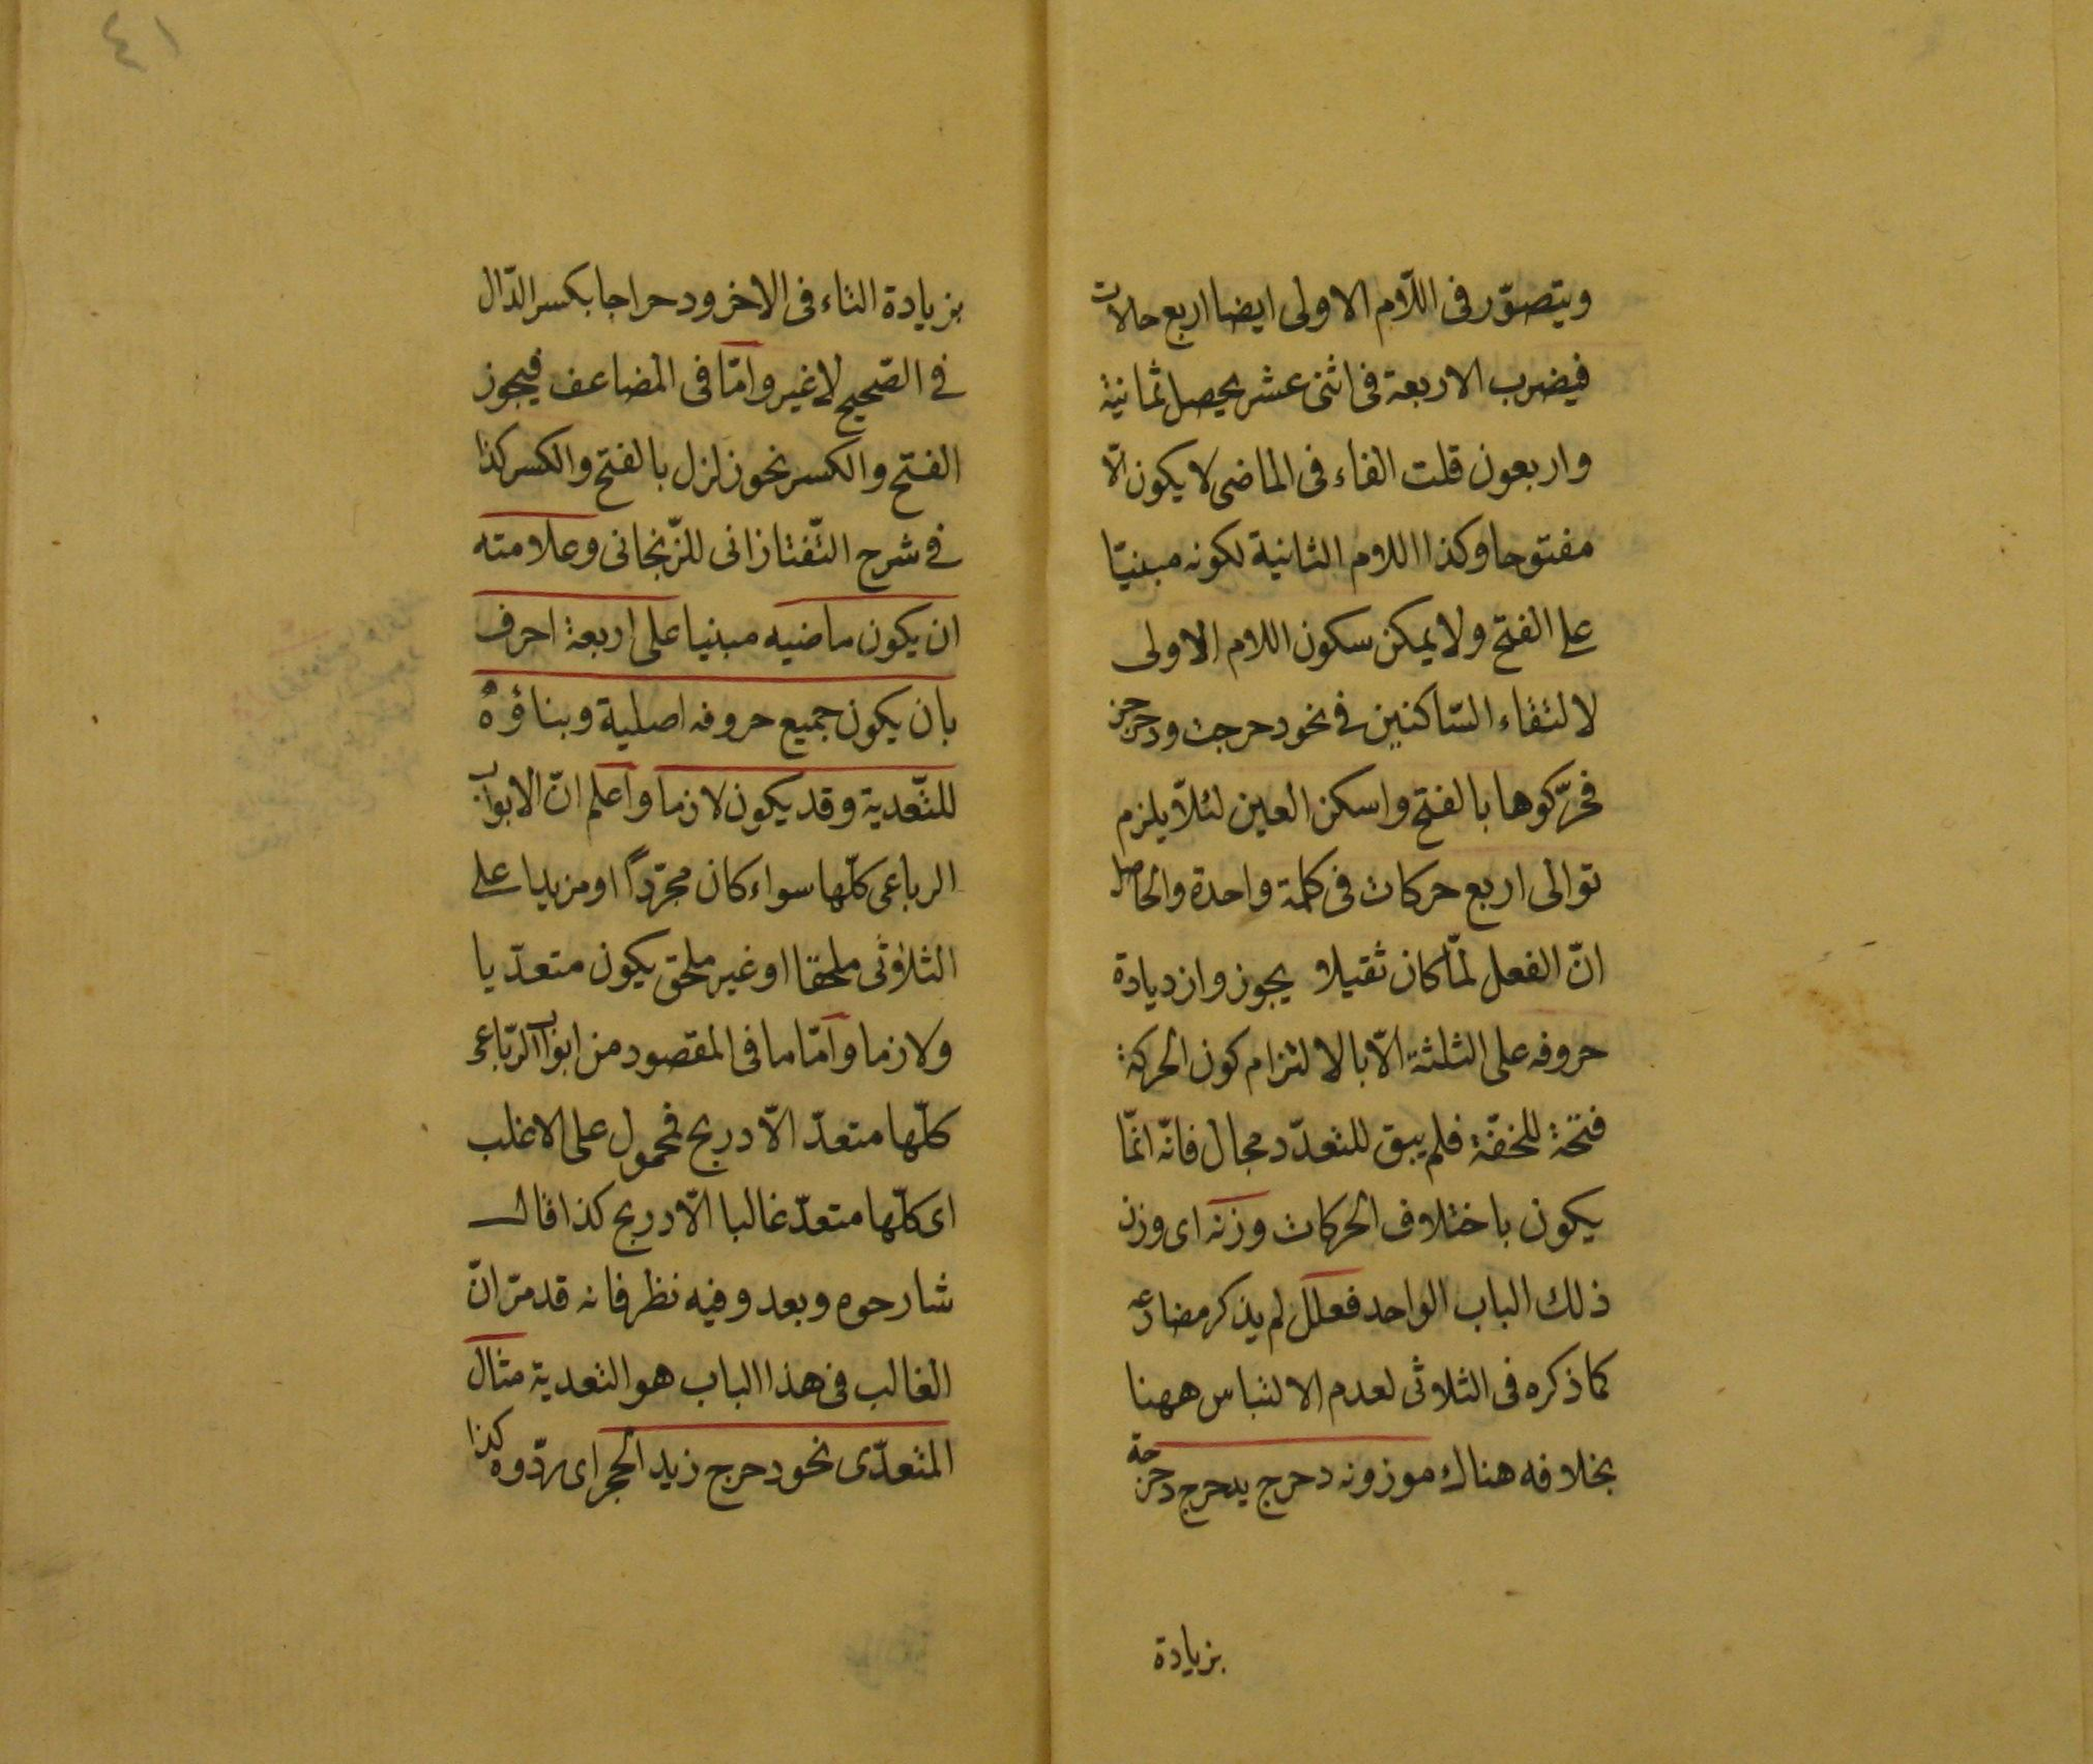 ويتصوّر فى اللّام الاولى ايضا اربع حالات
فيضرب الاربعة فى اثنى عشر يحصل ثمانية
واربعون قلت الفاء فى الماضى لا يكون الّا
مفتوحا وكذا اللام الثانية لكونه مبنيّا
على الفتح ولا يمكن سكون اللام الاولى
لالتقاء السّاكنين فى نحو دحرجت ودحرجن
فحرّكوها بالفتح واسكن العين لئلّا يلزم
توالى اربع حركات فى كلمة واحدة والحاصل
انّ الفعل لمّا كان ثقيلا يجوز وازديادة
حروفه على الثلثة الّا بالالتزام كون الحركة
فتحة للخفّة فلم يبق للتعدّد مجال فانّه انّما
يكون باختلاف الحركات وزنه اى وزن
ذلك الباب الواحد فعلل لم يذكر مضارعه
كما ذكره فى الثلاثى لعدم الالتباس ههنا
بخلافه هناك موزونه دحرج يدحرج دحرجة
بزيادة
٤١
بزيادة التاء فى الاخر ودحراجا بكسر الدّال
فى الصّحيح لا غير وامّا فى المضاعف فيجوز
الفتح والكسر نحو زلزل بالفتح والكسر كذا
فى شرح التّفتازانى للزّنجانى وعلامته
ان يكون ماضيه مبنيا على اربعة احرف
بان يكون جميع حروفه اصلية وبناؤهُ
للتّعدية وقد يكون لازما واعلم انّ الابواب
الرباعى كلّها سواء كان مجرّدًا او مزيدا على
الثلاثى ملحقا او غير ملحق يكون متعدّيا
ولازما وامّا ما فى المقصود من ابواب الرّباعى
كلّها متعدّ الّا دربخ فمحمول على الاغلب
اى كلّها متعدّ غالبا الّا دربخ كذا قال
شارحوه وبعد وفيه نظر فانه قد مرّ انّ
الغالب فى هذا الباب هو التعدية مثال
المتعدّى نحو دحرج زيد الحجر اى ردّوه كذا